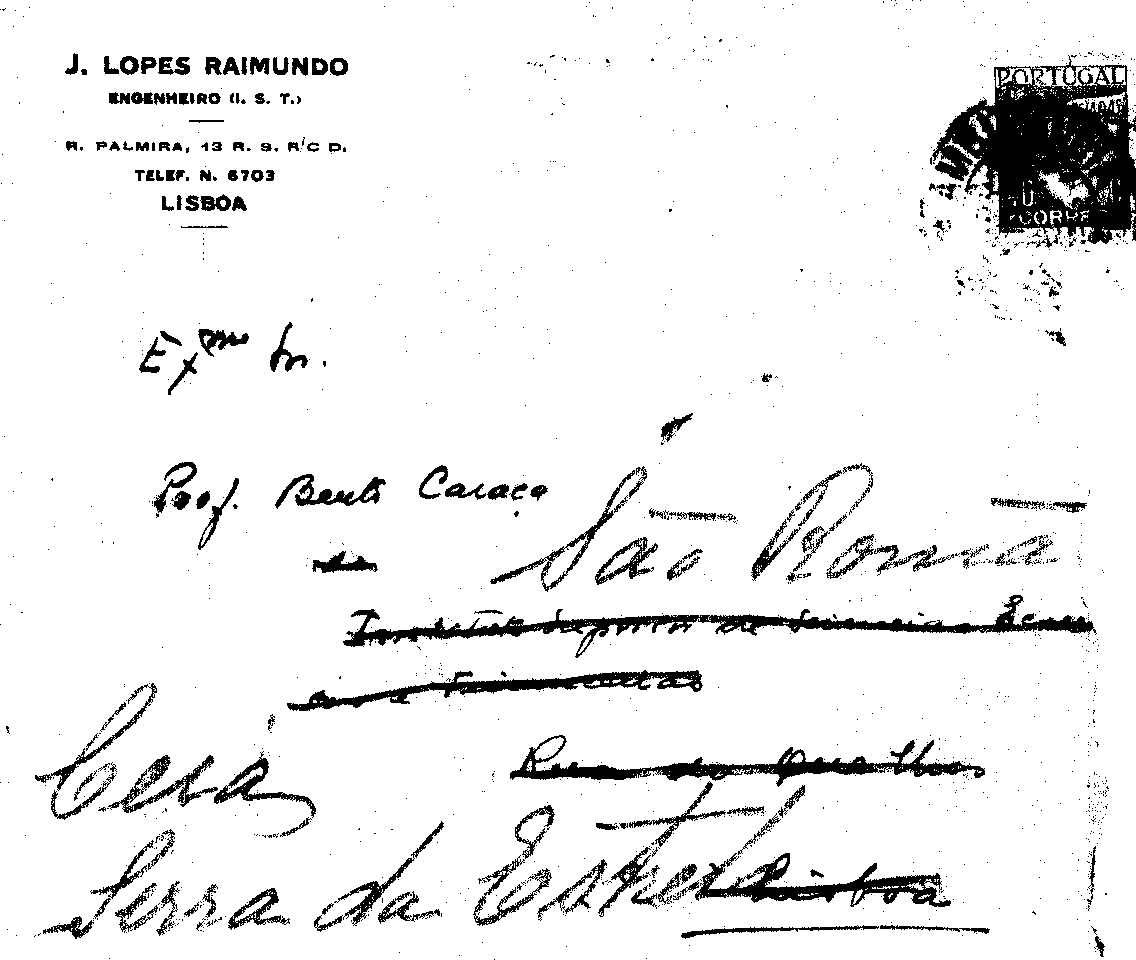 J. LOPES RAIMUNDO
ENGENHEIRO (I. S. T.)
R. PALMIRA, 13 R. S. R/C D.
TELEF. N. 6703
LISBOA
PORTUGAL
CORREIO
Exmo Sr.
Prof. Bento Caraça
São Romã
do
Instituto Superior de Sciencias Econo
e Financeiras
Rua do Quelhas
Cera
Serra da Estrela
Lisboa